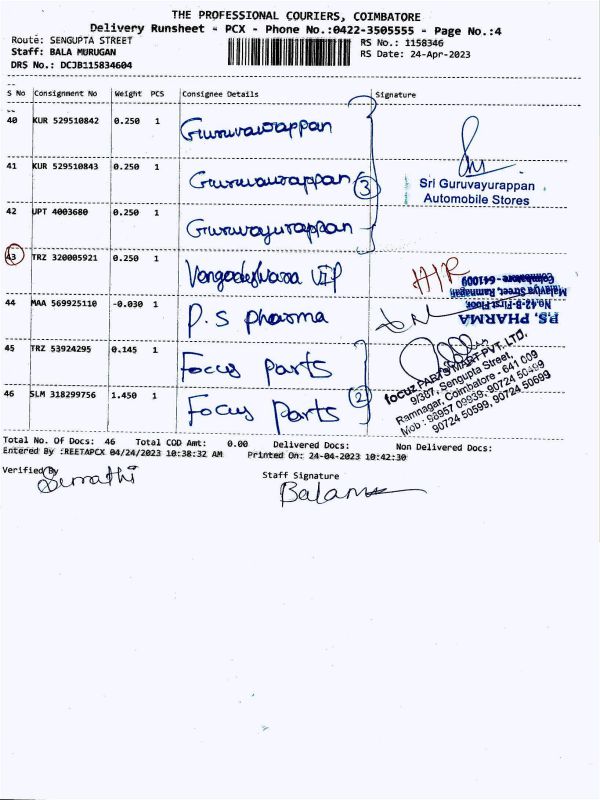 THE PROFESSIONAL COURIERS, COIMBATORE
Delivery Runsheet - PCX - Phone No.:0422-3505555 - Page No.:4
Route: SENGUPTA STREET
RS No.: 1158346
Staff: BALA MURUGAN
RS Date: 24-Apr-2023
DRS No.: DCJB115834604
S No Consignment No Weight PCS Consignee Details Signature
40 KUR 529510842 0.250 1 Guruvaurappan
41 KUR 529510843 0.250 1 Guruvaurappan 3
Sri Guruvayurappan
Automobile Stores
42 UPT 4003680 0.250 1 Guruvayurappan
43 TRZ 320005921 0.250 1 VIP H/R
44 MAA 569925110 -0.030 1 P.S pharma
P.S. PHARMA
No.42-B-First Floor,
Malaviya Street, Ramnagar,
Coimbatore - 641009
45 TRZ 53924295 0.145 1 Focus parts
46 SLM 318299756 1.450 1 Focus parts 2
focuz PARTS MART PVT. LTD.
9/387, Sengupta Street,
Ramnagar, Coimbatore - 641 009
Mob : 98957 09939, 90724 50499
90724 50599, 90724 50699
Total No. Of Docs: 46 Total COD Amt: 0.00 Delivered Docs: Non Delivered Docs:
Entered By :REETAPCX 04/24/2023 10:38:32 AM Printed On: 24-04-2023 10:42:30
Verified By
Staff Signature